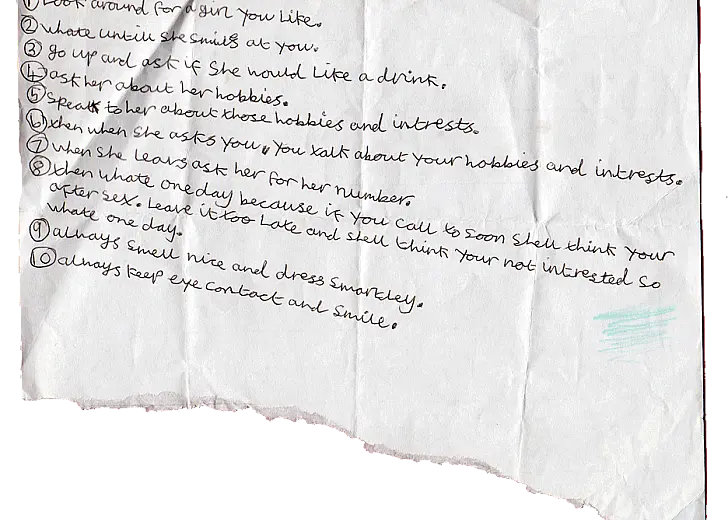 ① Look around for a girl you like.
② whate untill she smiles at you.
③ go up and ask if she would like a drink.
④ ask her about her hobbies.
⑤ speak to her about those hobbies and intrests.
⑥ then when she asks you, you talk about your hobbies and intrests.
⑦ when she leavs ask her for her number.
⑧ then whate one day because if you call to soon shell think your
after sex. Leave it too late and shell think your not intrested so
whate one day.
⑨ always smell nice and dress smartley.
⑩ always keep eye contact and smile.